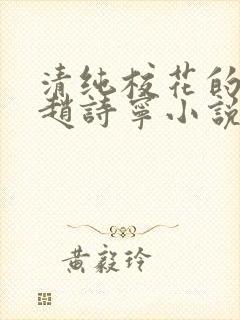 清纯校花的
趙詩寧小說
黃毅玲